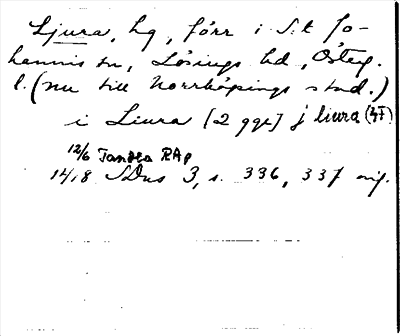 Ljura, hg, förr i S:t Jo-
hannis sn, Lösings hd, Österg.
l. (nu till Norrköpings stad.)
i Liura [2 ggr] j liura
12/6 Tandla RAp
1418 SDns 3, s. 336, 337 orig.